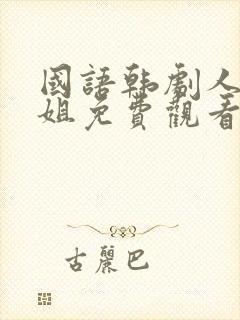 國語韩劇人
姐免費觀看
古麗巴